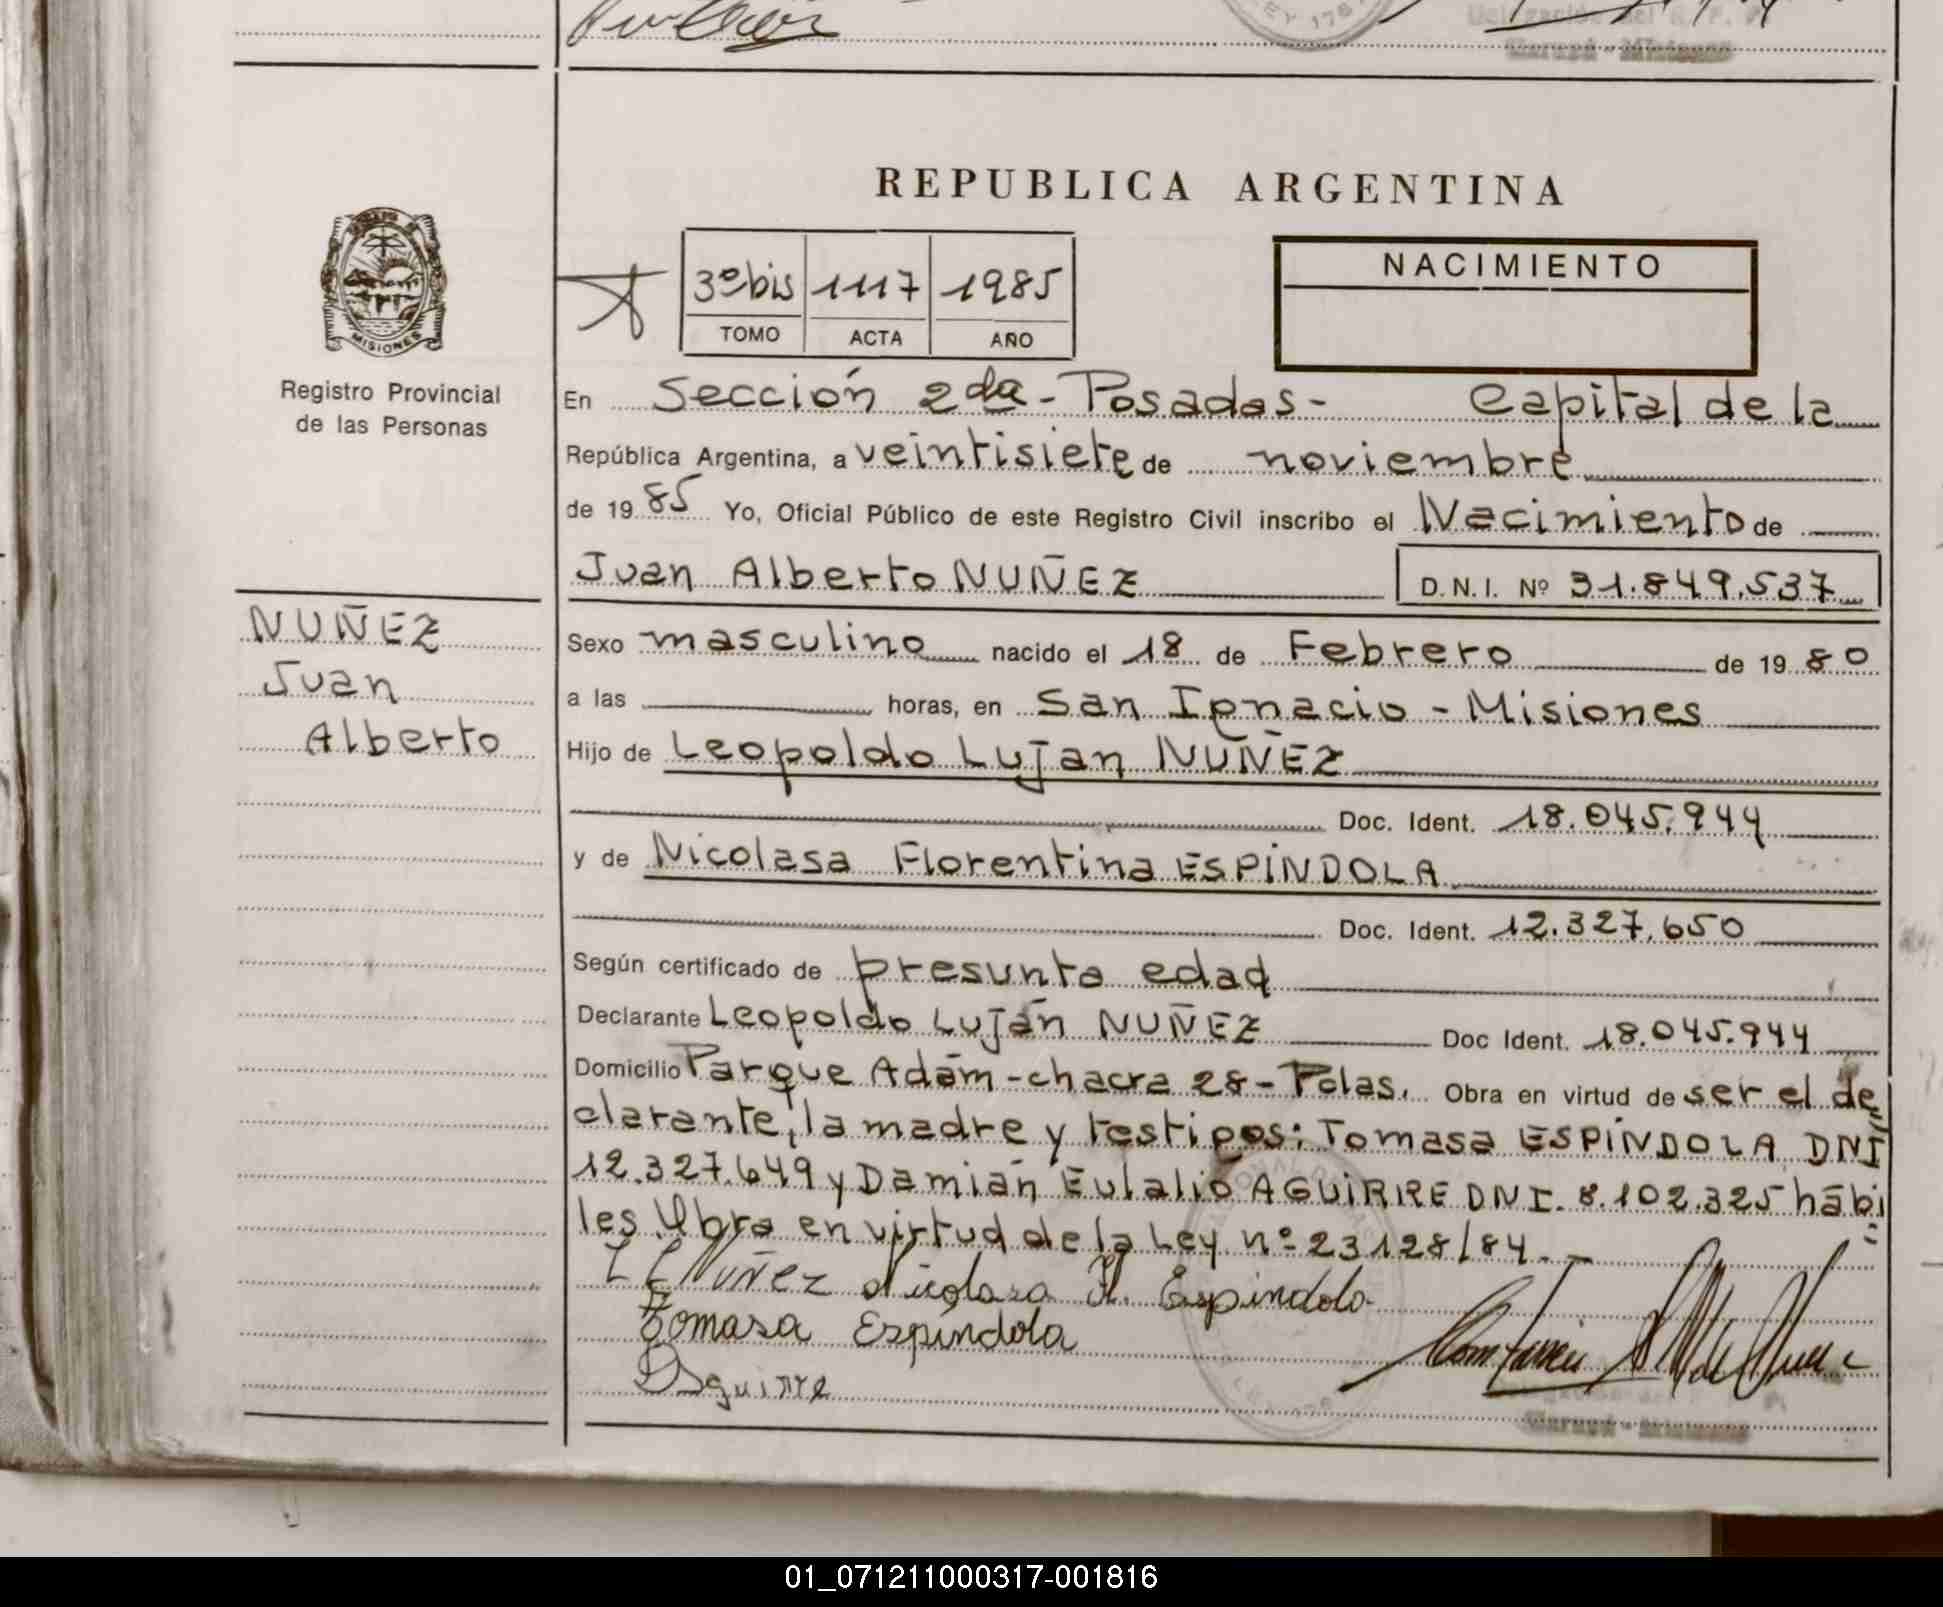 LEY 1767
REPUBLICA ARGENTINA
3º bis 1117 1985
TOMO ACTA AÑO
NACIMIENTO
MISIONES
Registro Provincial
de las Personas
En Sección 2da - Posadas - Capital de la
República Argentina, a veintisiete de noviembre
de 1985 Yo, Oficial Público de este Registro Civil inscribo el Nacimiento de
Juan Alberto NUÑEZ D.N.I. Nº 31.849.537
NUÑEZ
Juan
Alberto
Sexo masculino nacido el 18 de Febrero de 1980
a las horas, en San Ignacio - Misiones
Hijo de Leopoldo Luján NUÑEZ
Doc. Ident. 18.045.944
y de Nicolasa Florentina ESPÍNDOLA
Doc. Ident. 12.327.650
Según certificado de presunta edad
Declarante Leopoldo Luján NUÑEZ Doc Ident. 18.045.944
Domicilio Parque Adám - chacra 28 - Pdas. Obra en virtud de ser el de
clarante, la madre y testigos: Tomasa ESPÍNDOLA DNI
12.327.649 y Damián Eulalio AGUIRRE DNI. 8.102.325 hábi
les. Obra en virtud de la Ley nº 23128/84.-
L L Nuñez Nicolasa F. Espindola
Tomasa Espíndola
D Aguirre
01_071211000317-001816